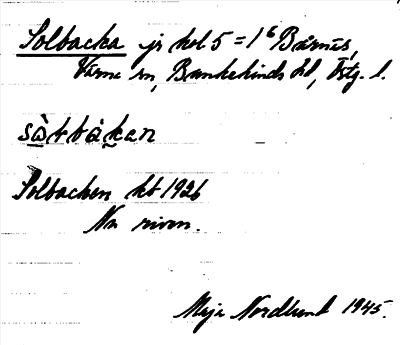 Solbacka jr hel 5 = 1⁶ Bårnäs,
Värna sn, Bankekinds hd, Östg. l.
sò̱lbàkan
Solbacken kb 1926
Nu riven.
Maja Nordlund 1945.